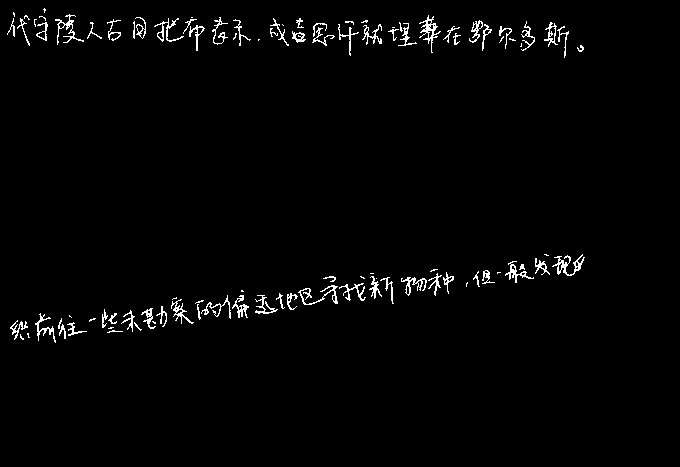 代守陵人古日扎布表示,成吉思汗就埋葬在鄂尔多斯。
前往一些未勘察的偏远地区寻找新物种,但一般发现